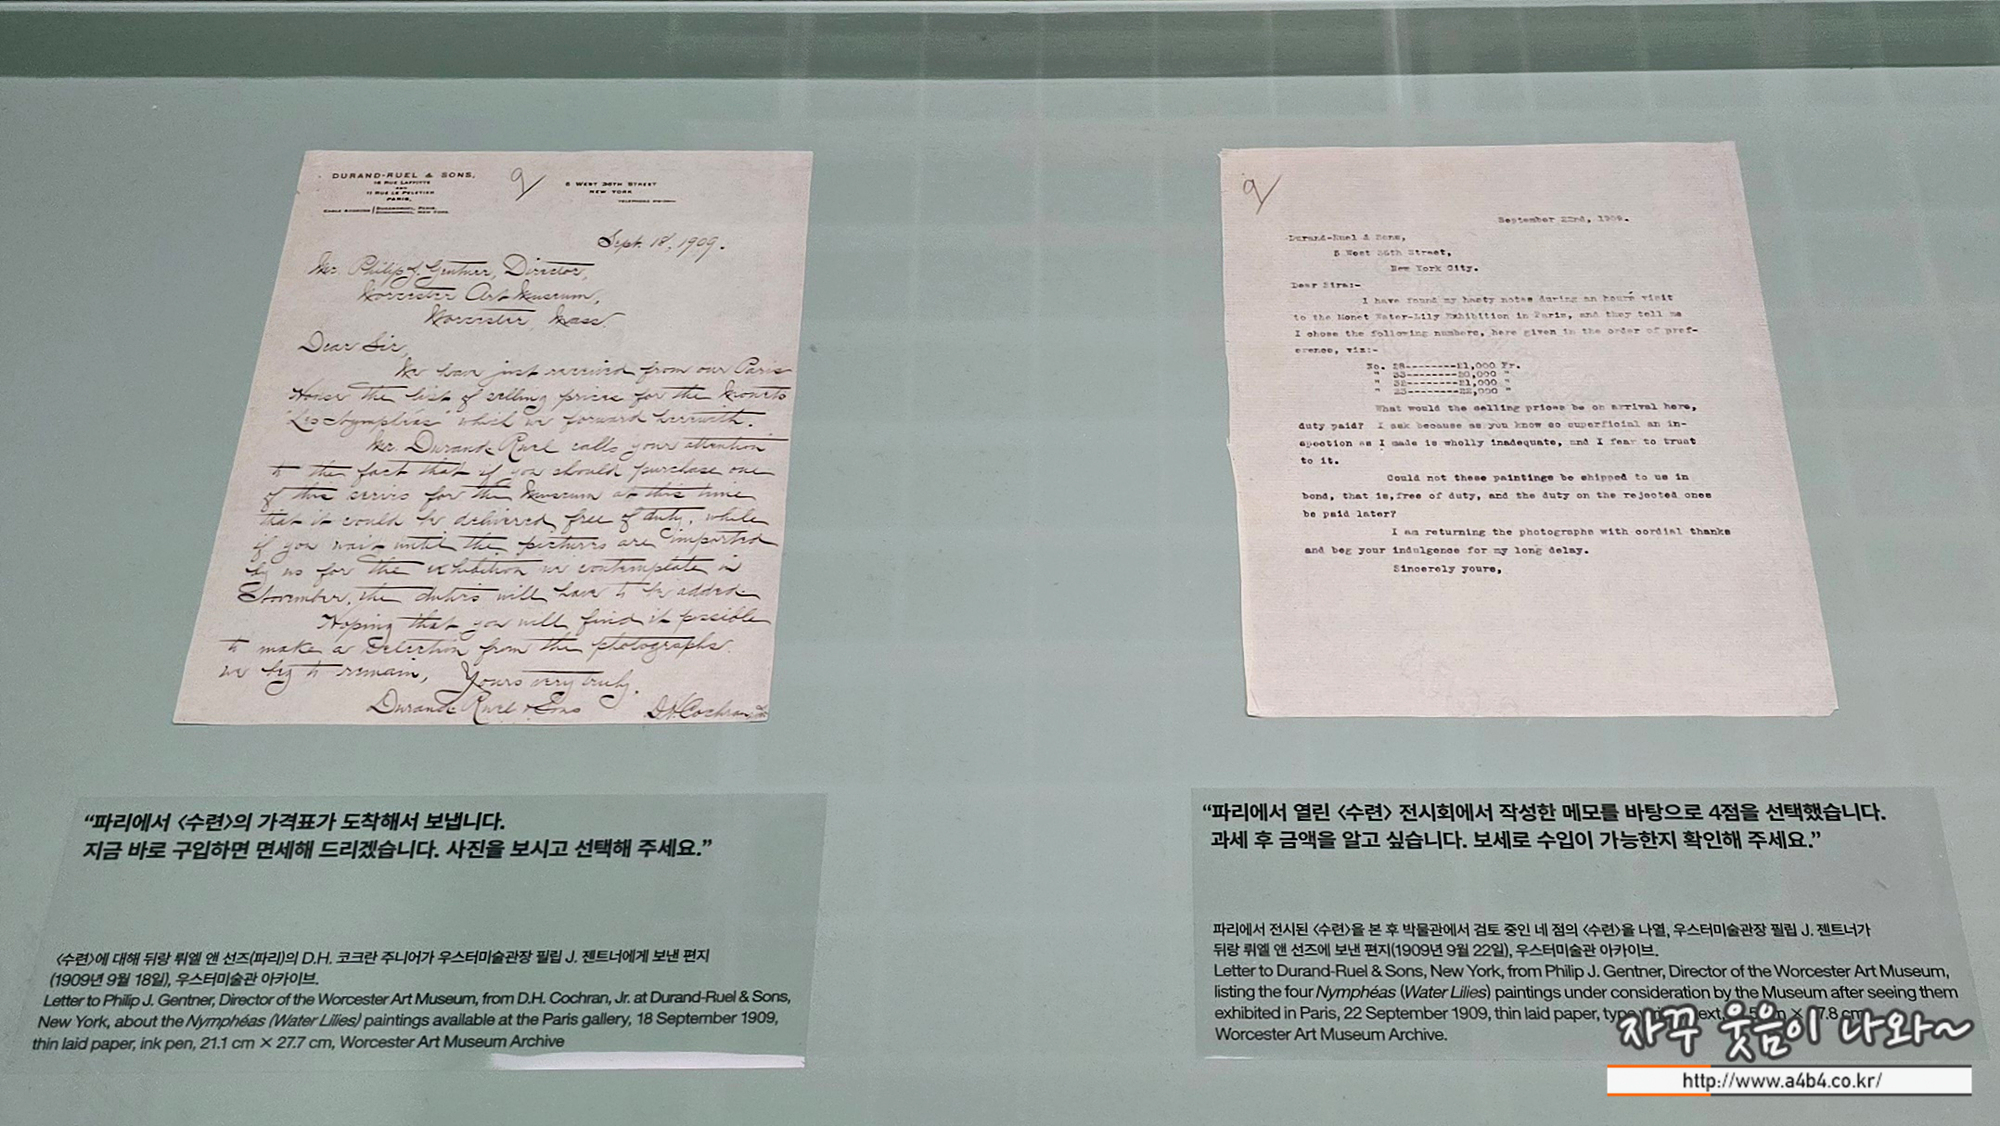 DURAND-RUEL & SONS,
16 RUE LAFFITTE
AND
11 RUE LE PELETIER
PARIS,
5 WEST 36TH STREET
NEW YORK
Sept. 18, 1909.
Mr. Philip J. Gentner, Director,
Worcester Art Museum,
Worcester, Mass.
Dear Sir,
We have just received from our Paris
House the list of selling prices for the Monets
"Les Nymphéas" which we forward herewith.
Mr. Durand-Ruel calls your attention
to the fact that if you should purchase one
of this series for the Museum at this time
that it could be delivered free of duty, while
if you wait until the pictures are imported
by us for the exhibition we contemplate in
November, the duties will have to be added.
Hoping that you will find it possible
to make a selection from the photographs.
we beg to remain, Yours very truly.
Durand-Ruel & Sons
D.H. Cochran, Jr.
September 22nd, 1909.
Durand-Ruel & Sons,
5 West 36th Street,
New York City.
Dear Sirs:-
I have found my hasty notes during an hours visit
to the Monet Water-Lily Exhibition in Paris, and they tell me
I chose the following numbers, here given in the order of pref-
erence, viz:-
No. --------21,000 Fr.
" 33--------20,000 "
" 32--------21,000 "
" 23--------22,000 "
What would the selling prices be on arrival here,
duty paid? I ask because as you know so superficial an in-
spection as I made is wholly inadequate, and I fear to trust
to it.
Could not these paintings be shipped to us in
bond, that is, free of duty, and the duty on the rejected ones
be paid later?
I am returning the photographs with cordial thanks
and beg your indulgence for my long delay.
Sincerely yours,
“파리에서 〈수련〉의 가격표가 도착해서 보냅니다.
지금 바로 구입하면 면세해 드리겠습니다. 사진을 보시고 선택해 주세요.”
〈수련〉에 대해 뒤랑 뤼엘 앤 선즈(파리)의 D.H. 코크란 주니어가 우스터미술관장 필립 J. 젠트너에게 보낸 편지
(1909년 9월 18일), 우스터미술관 아카이브.
Letter to Philip J. Gentner, Director of the Worcester Art Museum, from D.H. Cochran, Jr. at Durand-Ruel & Sons,
New York, about the Nymphéas (Water Lilies) paintings available at the Paris gallery, 18 September 1909,
thin laid paper, ink pen, 21.1 cm × 27.7 cm, Worcester Art Museum Archive
“파리에서 열린 〈수련〉 전시회에서 작성한 메모를 바탕으로 4점을 선택했습니다.
과세 후 금액을 알고 싶습니다. 보세로 수입이 가능한지 확인해 주세요.”
파리에서 전시된 〈수련〉을 본 후 박물관에서 검토 중인 네 점의 〈수련〉을 나열, 우스터미술관장 필립 J. 젠트너가
뒤랑 뤼엘 앤 선즈에 보낸 편지(1909년 9월 22일), 우스터미술관 아카이브.
Letter to Durand-Ruel & Sons, New York, from Philip J. Gentner, Director of the Worcester Art Museum,
listing the four Nymphéas (Water Lilies) paintings under consideration by the Museum after seeing them
exhibited in Paris, 22 September 1909, thin laid paper,
Worcester Art Museum Archive.
자꾸 웃음이 나와~
http://www.a4b4.co.kr/